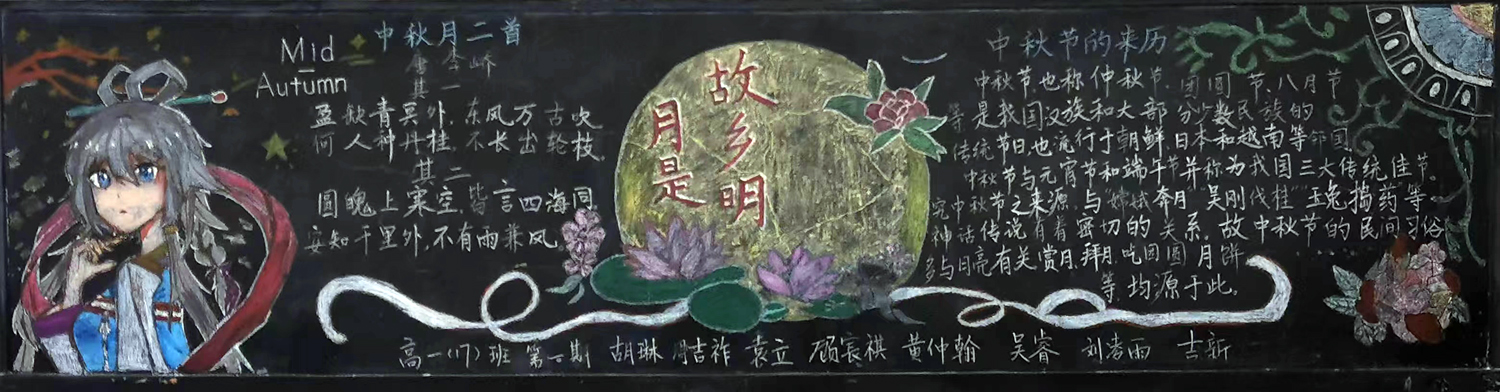 Mid
-
Autumn
中秋月二首
唐 李峤
其一
盈缺青冥外,东风万古吹
何人种丹桂,不长出轮枝。
其二
圆魄上寒空,皆言四海同.
安知千里外,不有雨兼风.
月是
故乡明
中秋节的来历
中秋节,也称仲秋节、团圆节、八月节
等,是我国汉族和大部分少数民族的
传统节日,也流行于朝鲜、日本和越南等邻国
中秋节与元宵节和端午节并称为我国三大传统佳节。
究中秋节之来源,与"嫦娥奔月 吴刚伐桂" 玉兔捣药"等
神话传说有着密切的关系。故中秋节的民间习俗
多与月亮有关,赏月、拜月、吃团圆月饼
等,均源于此。
高一(17)班 第一期 胡琳 周吉祚 袁立 顾宸祺 黄仲翰 吴睿 刘浩雨 吉新